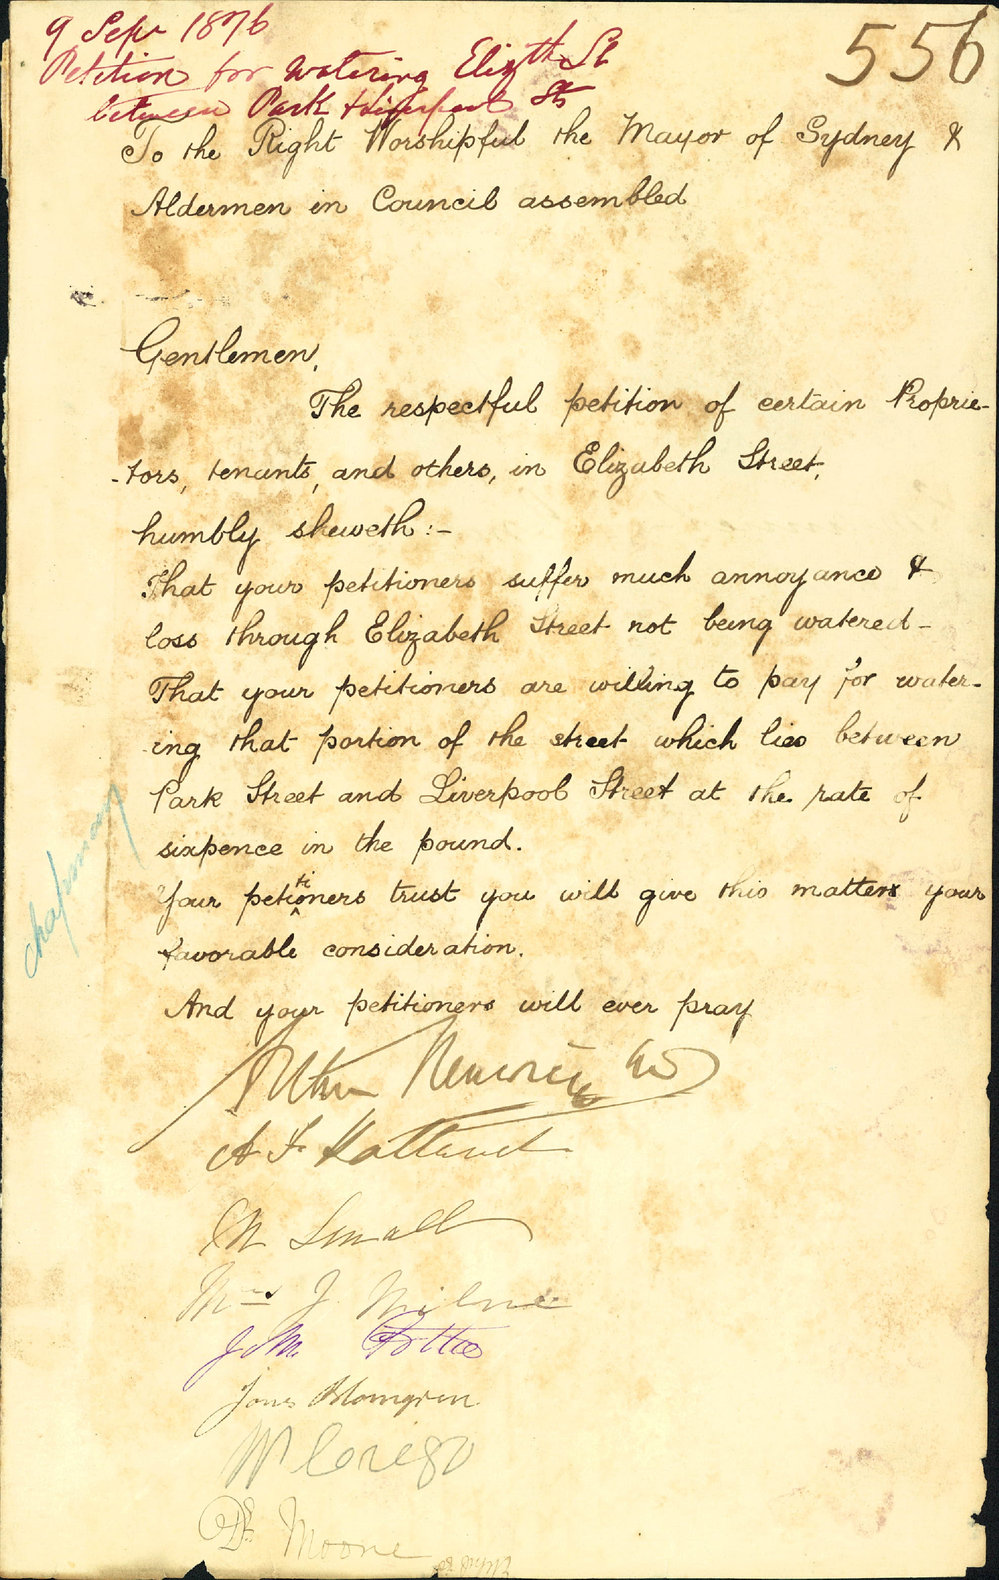 9 Sepr 1876
556
Petition for watering Elizth St
between Park & Liverpool Sts
To the Right Worshipful the Mayor of Sydney &
Aldermen in Council assembled
Gentlemen,
The respectful petition of certain Proprie-
-tors, tenants, and others, in Elizabeth Street,
humbly sheweth:-
That your petitioners suffer much annoyance &
loss through Elizabeth Street not being watered-
That your petitioners are willing to pay for water-
ing that portion of the street which lies between
Park Street and Liverpool Street at the rate of
sixpence in the pound.
Your petitioners trust you will give this matter your
favorable consideration.
And your petitioners will ever pray
A F
Small
Mrs J. Milne
J. M.
Jons Blomgren
W
Dr Moone